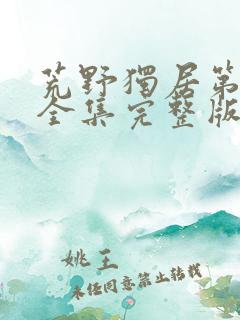 荒野獨居第
全集完整版
姚王
未经同意禁止转载